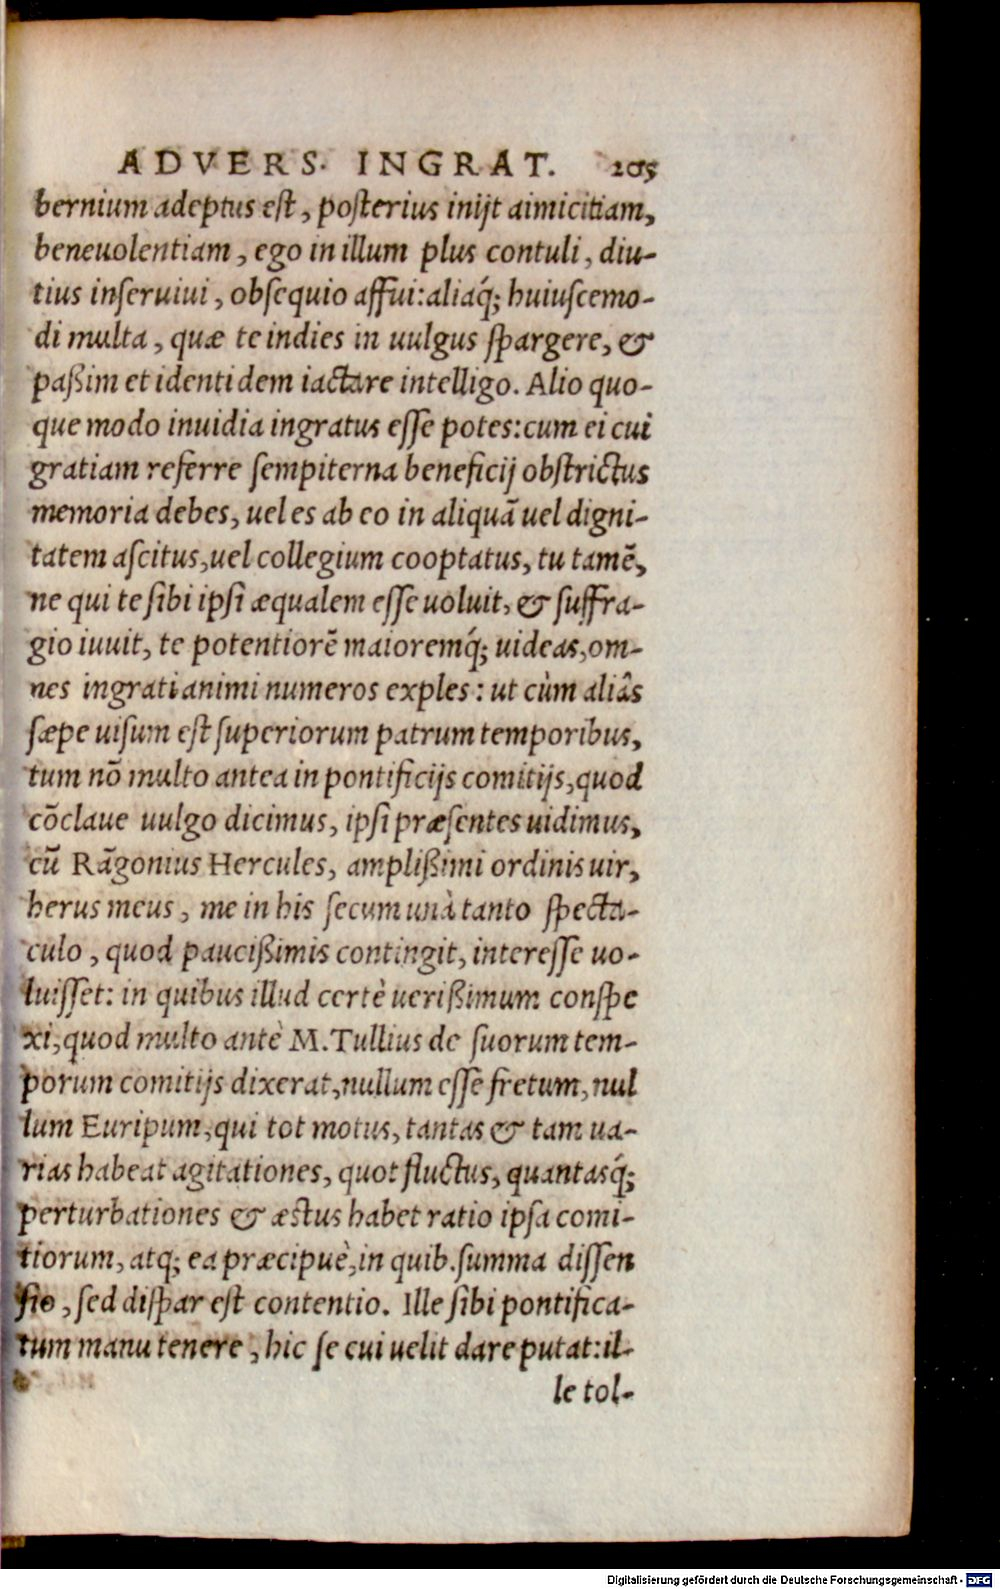 ADVERS. INGRAT. 205
bernium adeptus est, posterius inijt aimicitiam,
beneuolentiam, ego in illum plus contuli, diu-
tius inseruiui, obsequio affui: aliaq́; huiuscemo-
di multa, quæ te indies in uulgus spargere, &
paßim et identidem iactare intelligo. Alio quo-
que modo inuidia ingratus esse potes: cum ei cui
gratiam referre sempiterna beneficij obstrictus
memoria debes, uel es ab eo in aliquã uel digni-
tatem ascitus, uel collegium cooptatus, tu tamẽ,
ne qui te sibi ipsi æqualem esse uoluit, & suffra-
gio iuuit, te potentiorẽ maioremq́; uideas, om-
nes ingrati animi numeros exples: ut cùm aliâs
sæpe uisum est superiorum patrum temporibus,
tum nõ multo antea in pontificijs comitijs, quod
cõclaue uulgo dicimus, ipsi præsentes uidimus,
cũ Rãgonius Hercules, amplißimi ordinis uir,
herus meus, me in his secum unà tanto specta-
culo, quod paucißimis contingit, interesse uo-
luisset: in quibus illud certè uerißimum conspe
xi, quod multo antè M. Tullius de suorum tem-
porum comitijs dixerat, nullum esse fretum, nul
lum Euripum, qui tot motus, tantas & tam ua-
rias habeat agitationes, quot fluctus, quantasq́;
perturbationes & æstus habet ratio ipsa comi-
tiorum, atq; ea præcipuè, in quib. summa dissen
sio, sed dispar est contentio. Ille sibi pontifica-
tum manu tenere, hic se cui uelit dare putat: il-
le tol-
Digitalisierung gefördert durch die Deutsche Forschungsgemeinschaft - DFG